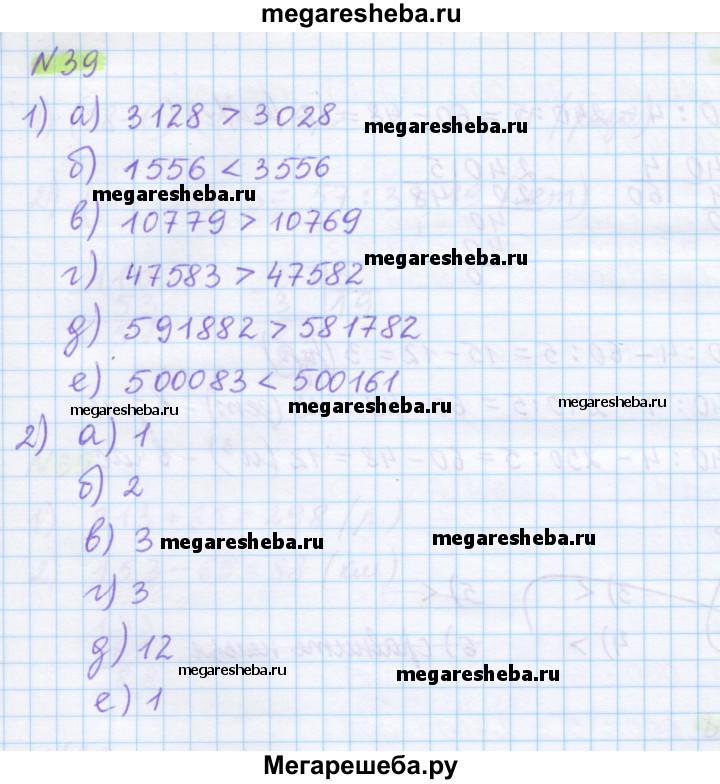 megaresheba.ru
N 39
1) а) 3128 > 3028
megaresheba.ru
б) 1556 < 3556
megaresheba.ru
в) 10779 > 10769
г) 47583 > 47582
megaresheba.ru
д) 591882 > 581782
е) 500083 < 500161
megaresheba.ru megaresheba.ru megaresheba.ru
2) а) 1
б) 2
в) 3
megaresheba.ru megaresheba.ru
г) 3
д) 12
megaresheba.ru megaresheba.ru
е) 1
Мегарешеба.ру